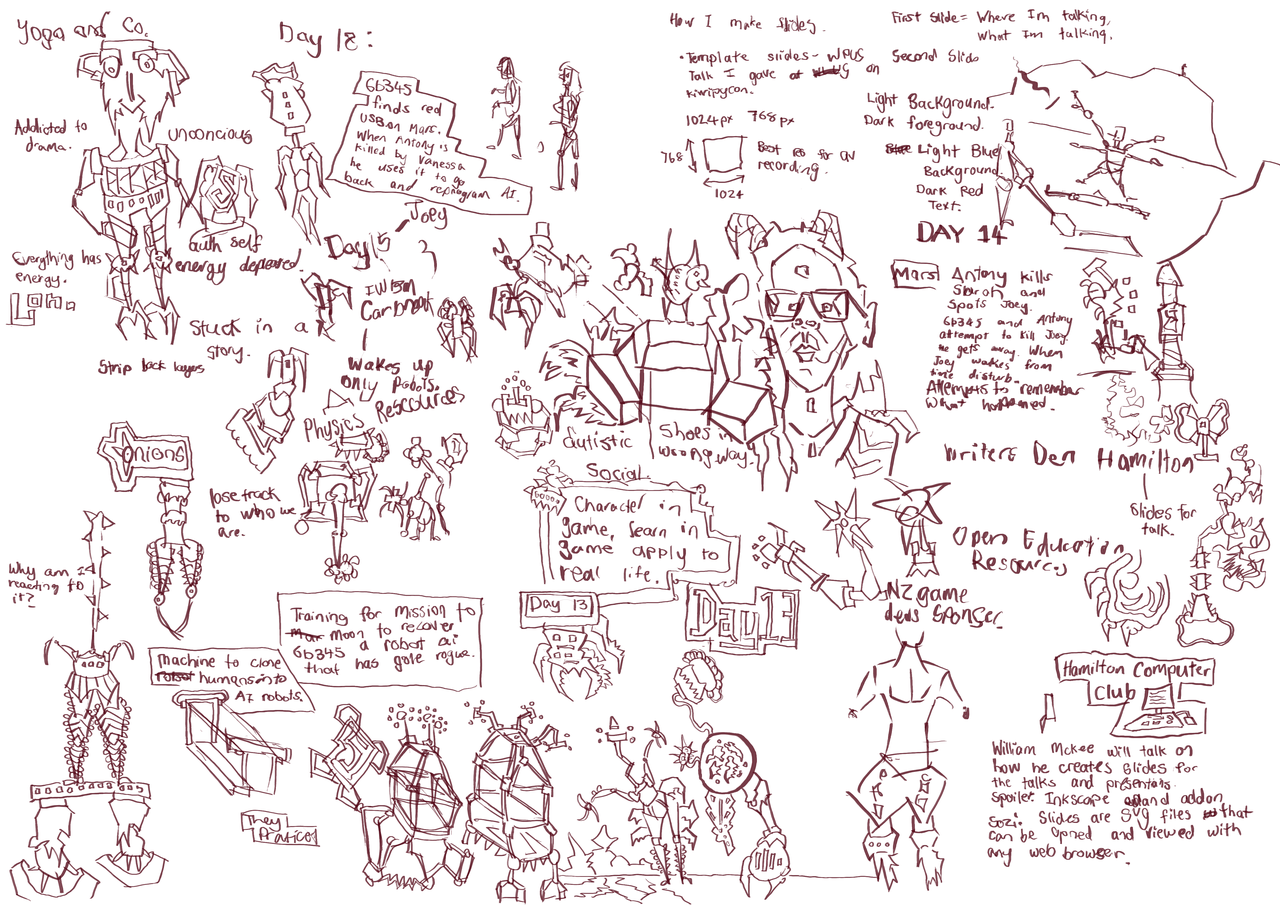 Yoga and Co.
Day 18:
Addicted to
drama.
unconcious
6b345
finds red
USB on Mars.
When Antony is
killed by Vanessa
he uses it to go
back and reprogram AI.
Joey
auth self
energy depeaved.
Everything has
energy.
Stuck in a
story.
Strip back layers
Day 15
Wakes up
only Robots.
Physics
Rescources
Onions
lose track
to who we
are.
Why am I
reacting to
it?
Training for mission to
moon to recover
6b345 a robot ai
that has gole rogue.
Machine to clone
humans into
AI robots.
They
How I make slides.
• Template slides - WPUS
Talk I gave at on
kiwipycon.
1024px 768px
768
1024
Best res for AV
recording.
First slide = Where Im talking,
What Im talking.
Second Slide
Light Background.
Dark foreground.
Light Blue
Background
Dark Red
Text.
DAY 14
Mars
Antony kills
Sharon and
Spots Joey.
6b345 and Antony
attempt to kill Joey.
He gets away. When
Joey wakes from
time disturb.
Attempts to remember
what happened.
Autistic
Shoes in
wrong way.
Social
Character in
game, learn in
game apply to
real life.
Day 13
Day 13
Writers Den Hamilton
Slides for
talk.
Open Education
Resources
NZ game
devs Sponser.
Hamilton Computer
Club
William Mckee will talk on
how he creates slides for
the talks and presentatis.
Spoiler. Inkscape and addon
Sozi. Slides are SVG files that
can be opned and viewed with
any web browser.